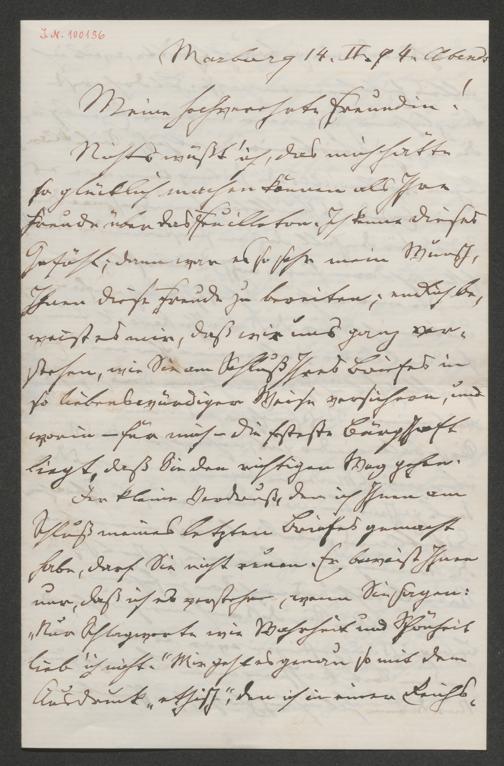 I. N. 100156
Marburg 14. II. 94. Abends
Meine hochverehrte Freundin!
Nichts wüßt' ich, das mich hätte
so glücklich machen können als Ihre
Freude über das Feuilleton. Ich kenne dieses
Gefühl; dann war es so sehr mein Wunsch,
Ihnen diese Freude zu bereiten; endlich be-
weist es mir, daß wir uns ganz ver-
stehen, wie Sie am Schluß Ihres Briefes in
so liebenswürdiger Weise versichern, und
worin – für mich – die festeste Bürgschaft
liegt, daß Sie den richtigen Weg gehen.
Der kleine Verdruß, den ich Ihnen am
Schluß meines letzten Briefes gemacht
habe, darf Sie nicht reuen. Er beweist Ihnen
nur, daß ich es verstehe, wenn Sie sagen:
„Nur Schlagworte wie Wahrheit und Schönheit
lieb' ich nicht." Mir geht es genau so mit dem
Ausdruck „ethisch", den ich in einem Reichs-